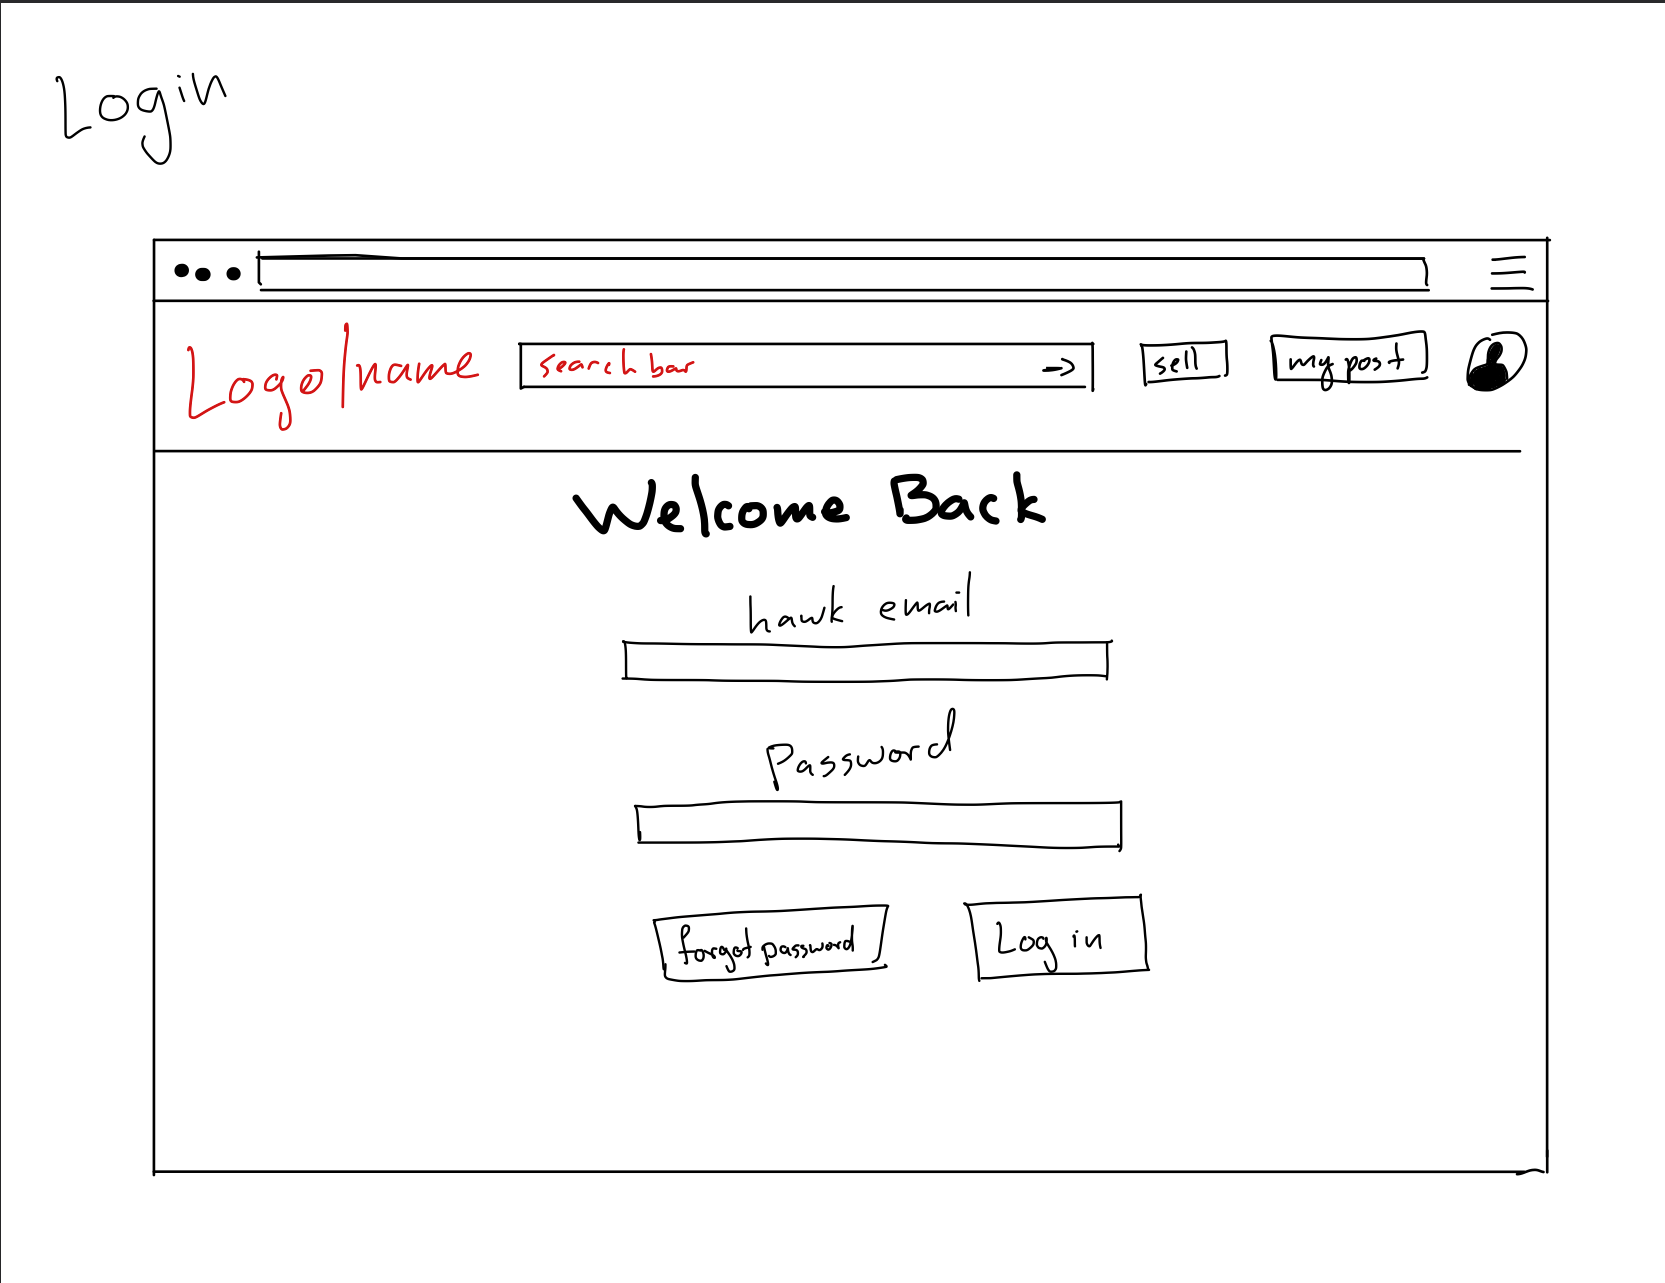 Login
Logo/name search bar → sell my post
Welcome Back
hawk email
Password
forgot password Log in